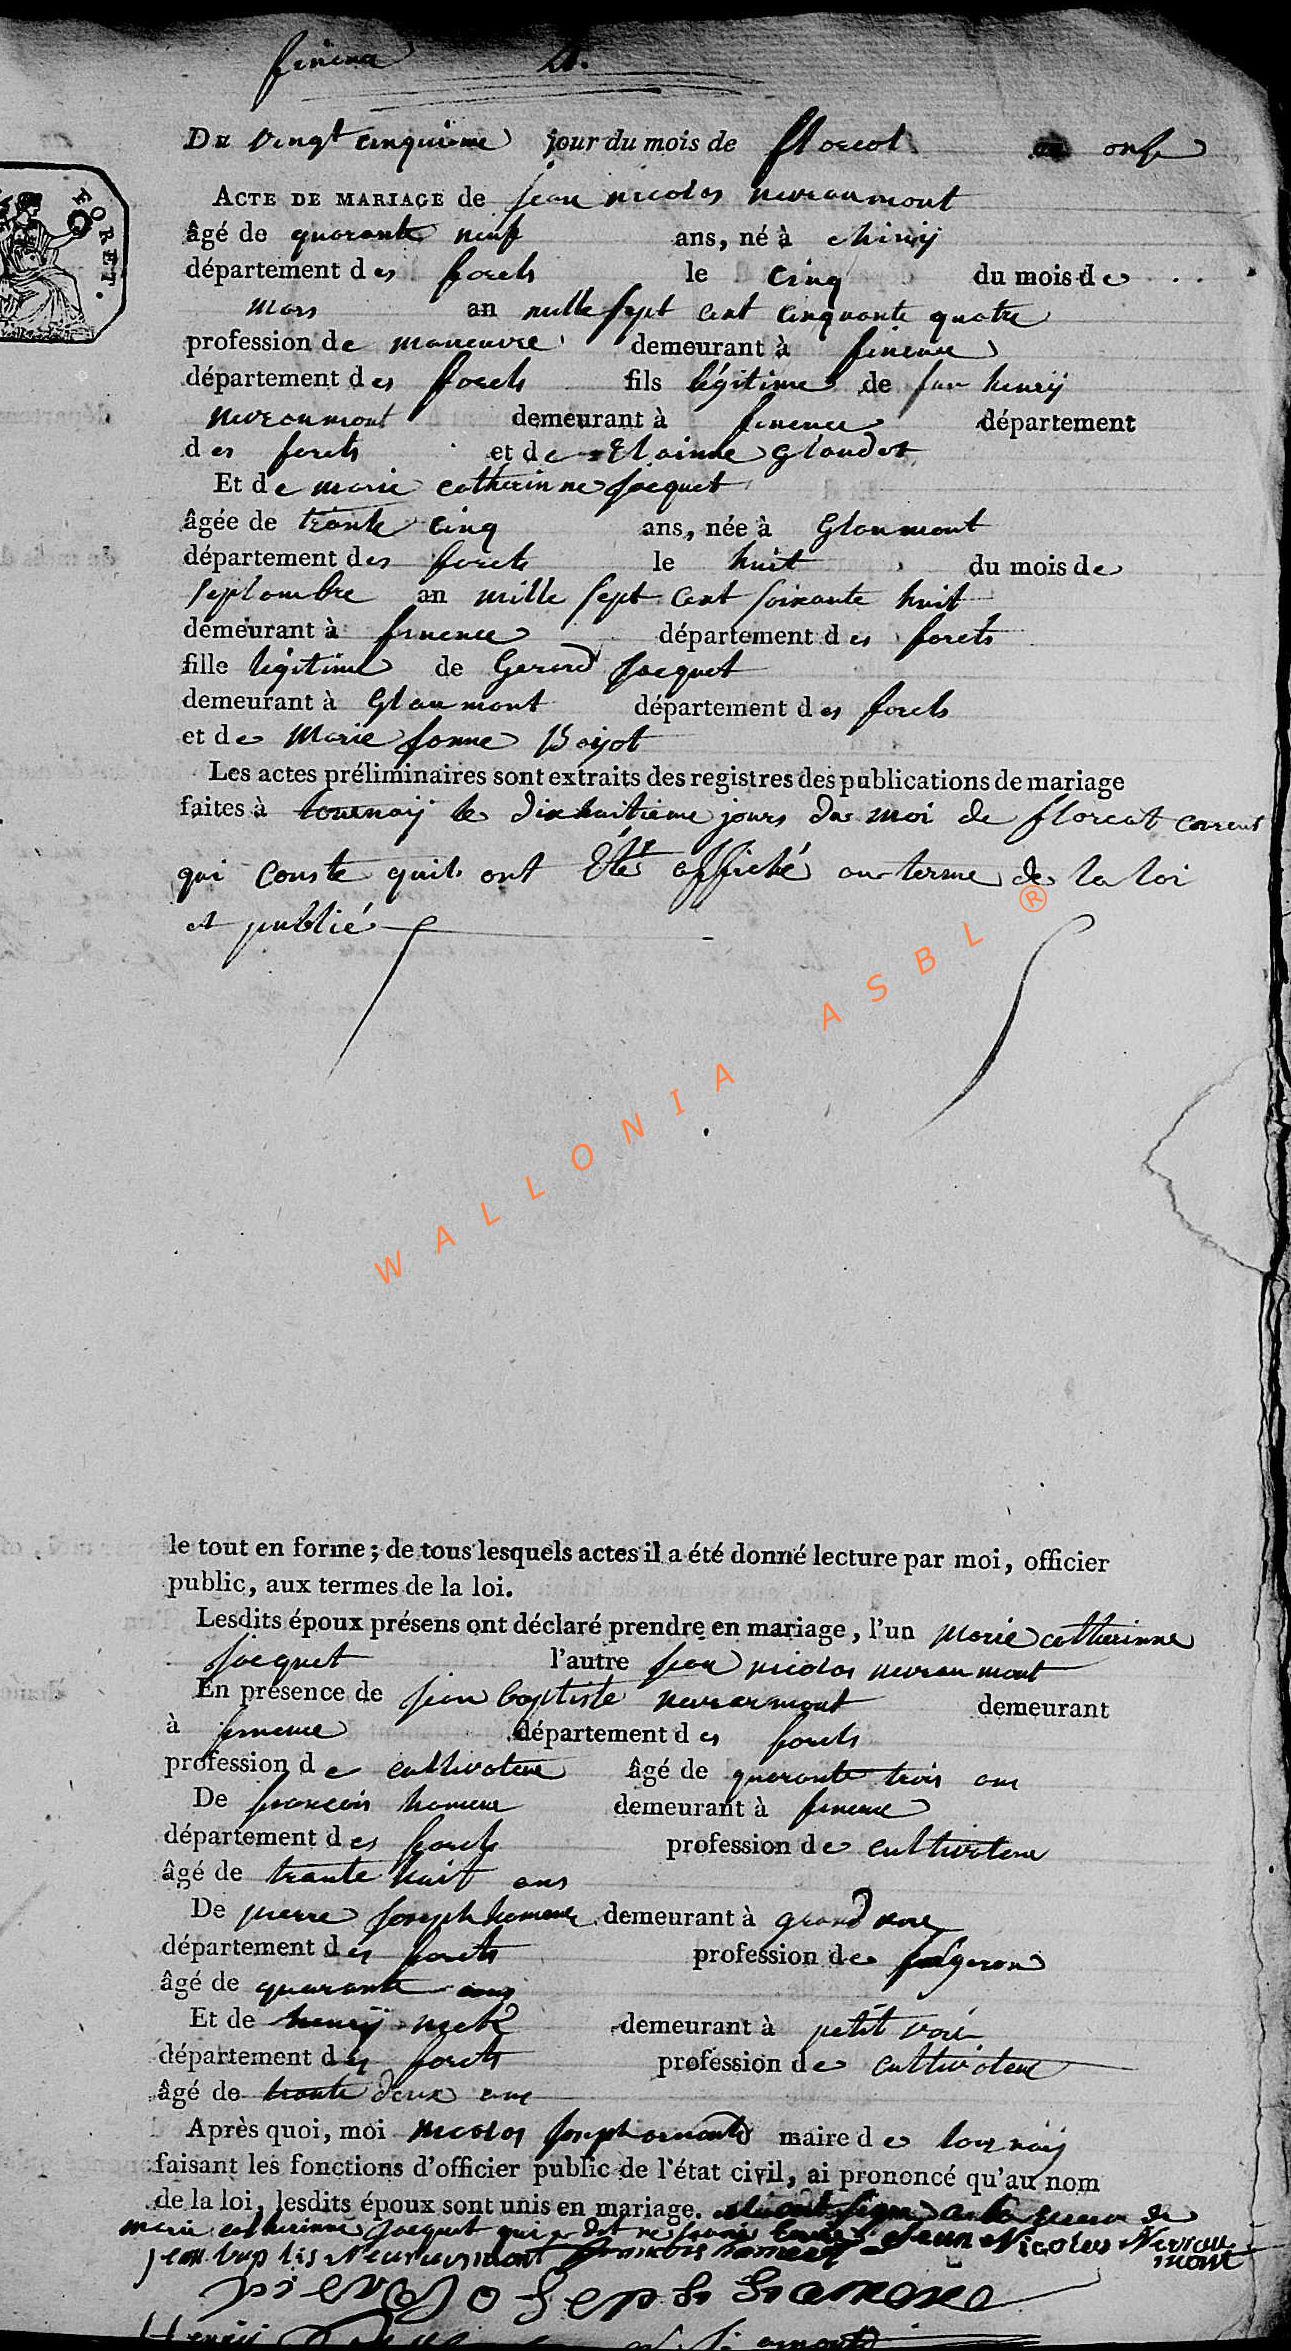 fineuse 4.
FORET.
Du vingt cinquieme jour du mois de floreal an onse
ACTE DE MARIAGE de jean nicolas nevraumont
âgé de quarante neuf ans, né à chiny
département des forets le cinq du mois de
mars an mille sept cent cinquante quatre
profession de maneuvre demeurant à fineuse
département des forets fils légitime de jean henrÿ
nevraumont demeurant à fineuse département
des forets et de Glaudot
Et de marie catherinne jacquet
âgée de trante cinq ans, née à Glaumont
département des forets le huit du mois de
septembre an mille sept cent soixante huit
demeurant à fineuse département des forets
fille légitime de Gerard jacquet
demeurant à Glaumont département des forets
et de Marie janne
Les actes préliminaires sont extraits des registres des publications de mariage
faites à tournaÿ le dixhuitieme jours du moi de floreal
qui conste quils ont affiché au terme de la loi
et publié
WALLONIA ASBL ®
le tout en forme ; de tous lesquels actes il a été donné lecture par moi, officier
public, aux termes de la loi.
Lesdits époux présens ont déclaré prendre en mariage, l'un marie catherinne
jacquet l'autre jean nicolas nevraumont
En présence de jean baptiste nevraumont demeurant
à fineuse département des forets
profession de cultivateur âgé de quarante trois ans
De françois demeurant à fineuse
département des forets profession de cultivateur
âgé de trante huit ans
De pierre joseph demeurant à
département des forets profession de forgeron
âgé de quarante cinq
Et de henrÿ demeurant à petit voir
département des forets profession de cultivateur
âgé de trante deux ans
Après quoi, moi nicolas joseph maire de tournaÿ
faisant les fonctions d'officier public de l'état civil, ai prononcé qu'au nom
de la loi, lesdits époux sont unis en mariage. de
marie catherinne jacquet qui a dit ne Jean Nicolas Nevrau
mont
jean baptis
joseph